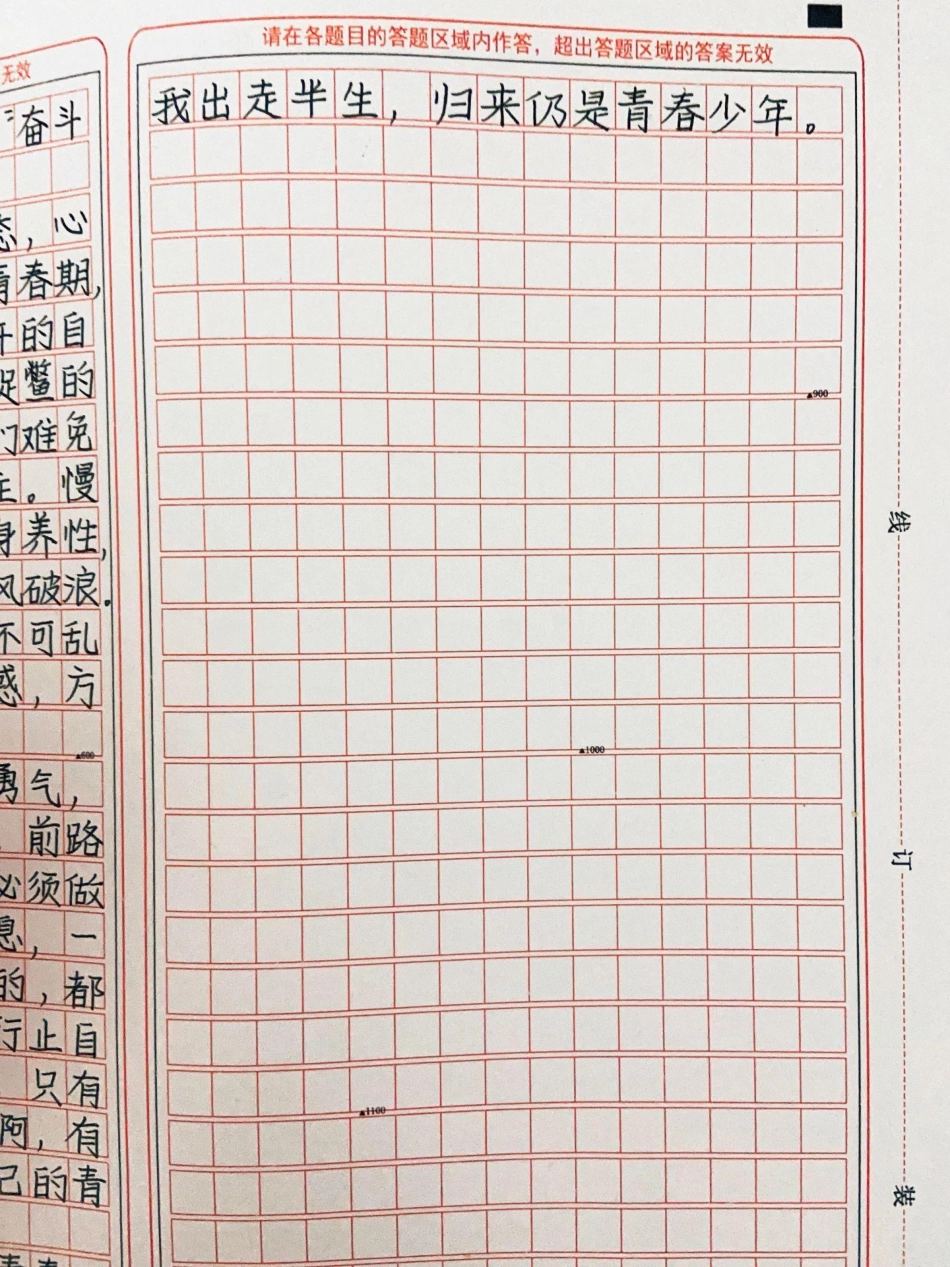 无效
奋斗
态，心
青春期，
的自
捉鳖的
们难免
。慢
身养性，
风破浪。
不可乱
惑，方
▲600
勇气，
前路
必须做
息，一
的，都
行止自
只有
啊，有
己的青
青春
请在各题目的答题区域内作答，超出答题区域的答案无效
我出走半生，归来仍是青春少年。
▲900
▲1000
▲1100
线
订
装